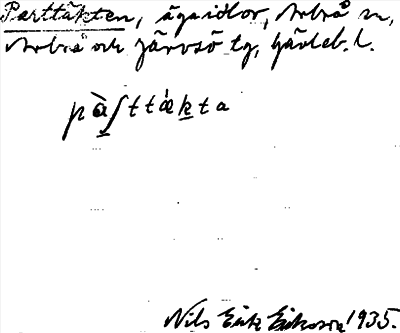 Parttäkten, ägoidlor, Arbrå sn,
Arbrå och Järvsö tg, Gävleb. l.
pàʃttækta
Nils Erik Eriksson 1935.